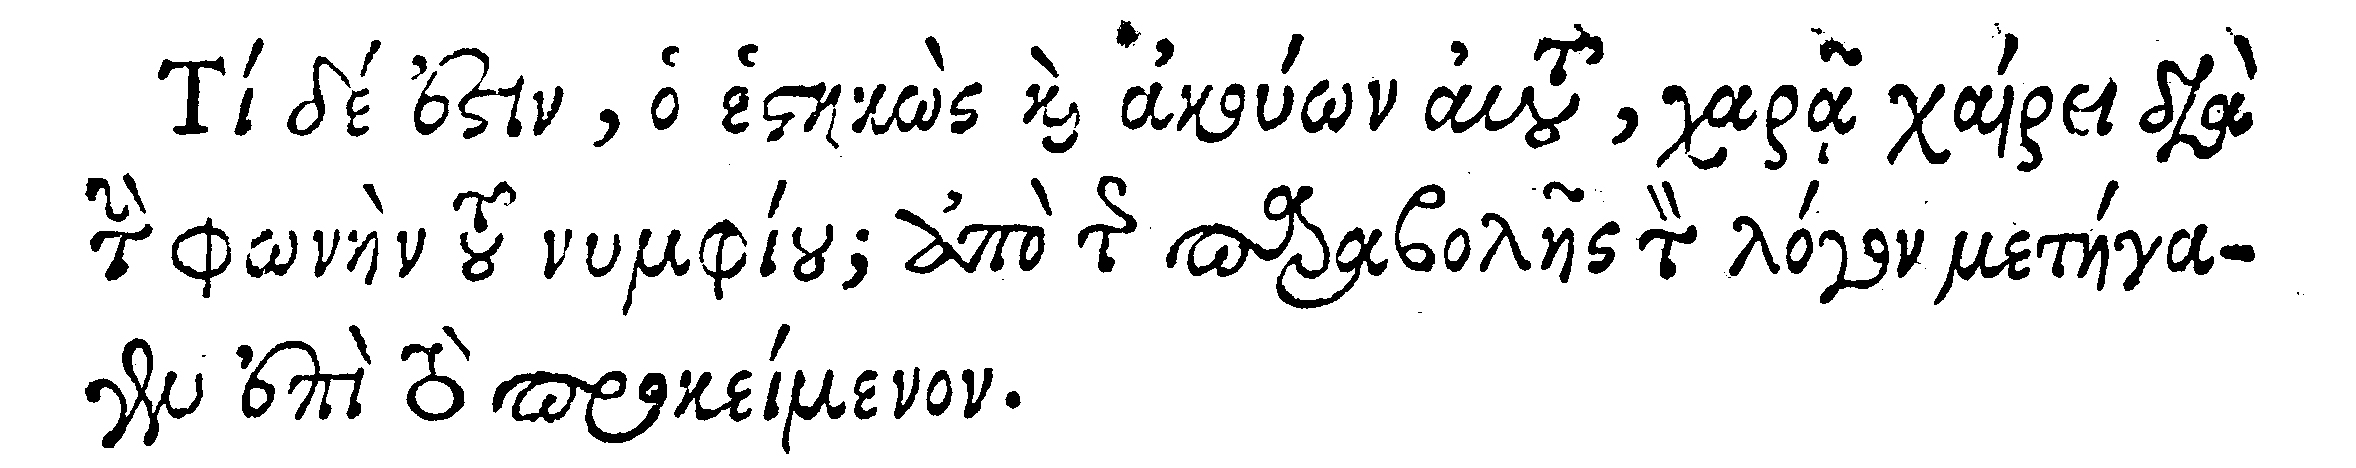 Τί δέ ἐστιν, ὁ ἑστηκὼς καὶ ἀκούων αὐτοῦ, χαρᾷ χαίρει διὰ
τὴν φωνὴν τοῦ νυμφίου; ἀπὸ τῆς παραβολῆς τὸν λόγον μετήγα-
γεν ἐπὶ τὸ προκείμενον.